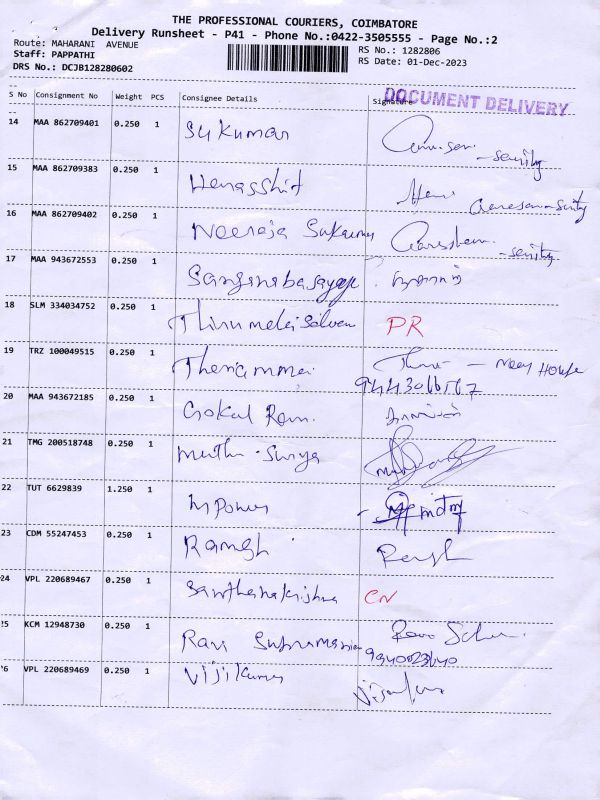 THE PROFESSIONAL COURIERS, COIMBATORE
Delivery Runsheet - P41 - Phone No.:0422-3505555 - Page No.:2
Route: MAHARANI AVENUE
RS No.: 1282806
Staff: PAPPATHI
RS Date: 01-Dec-2023
DRS No.: DCJB128280602
DOCUMENT DELIVERY
S No Consignment No Weight PCS Consignee Details Signature
14 MAA 862709401 0.250 1 Sukumar
- Senity
15 MAA 862709383 0.250 1
16 MAA 862709402 0.250 1 Neeraja Sukumar
- Senity
17 MAA 943672553 0.250 1
18 SLM 334034752 0.250 1 Thirumalai Selvan PR
19 TRZ 100049515 0.250 1 Thenammai - Next House
20 MAA 943672185 0.250 1 Gokul Ram
21 TMG 200518748 0.250 1 Muthu Surya
22 TUT 6629839 1.250 1 Mpower
23 CDM 55247453 0.250 1 Ramesh
24 VPL 220689467 0.250 1 Santhanakrishna CN
25 KCM 12948730 0.250 1 Ravi Subramanian
26 VPL 220689469 0.250 1 Vijikumar